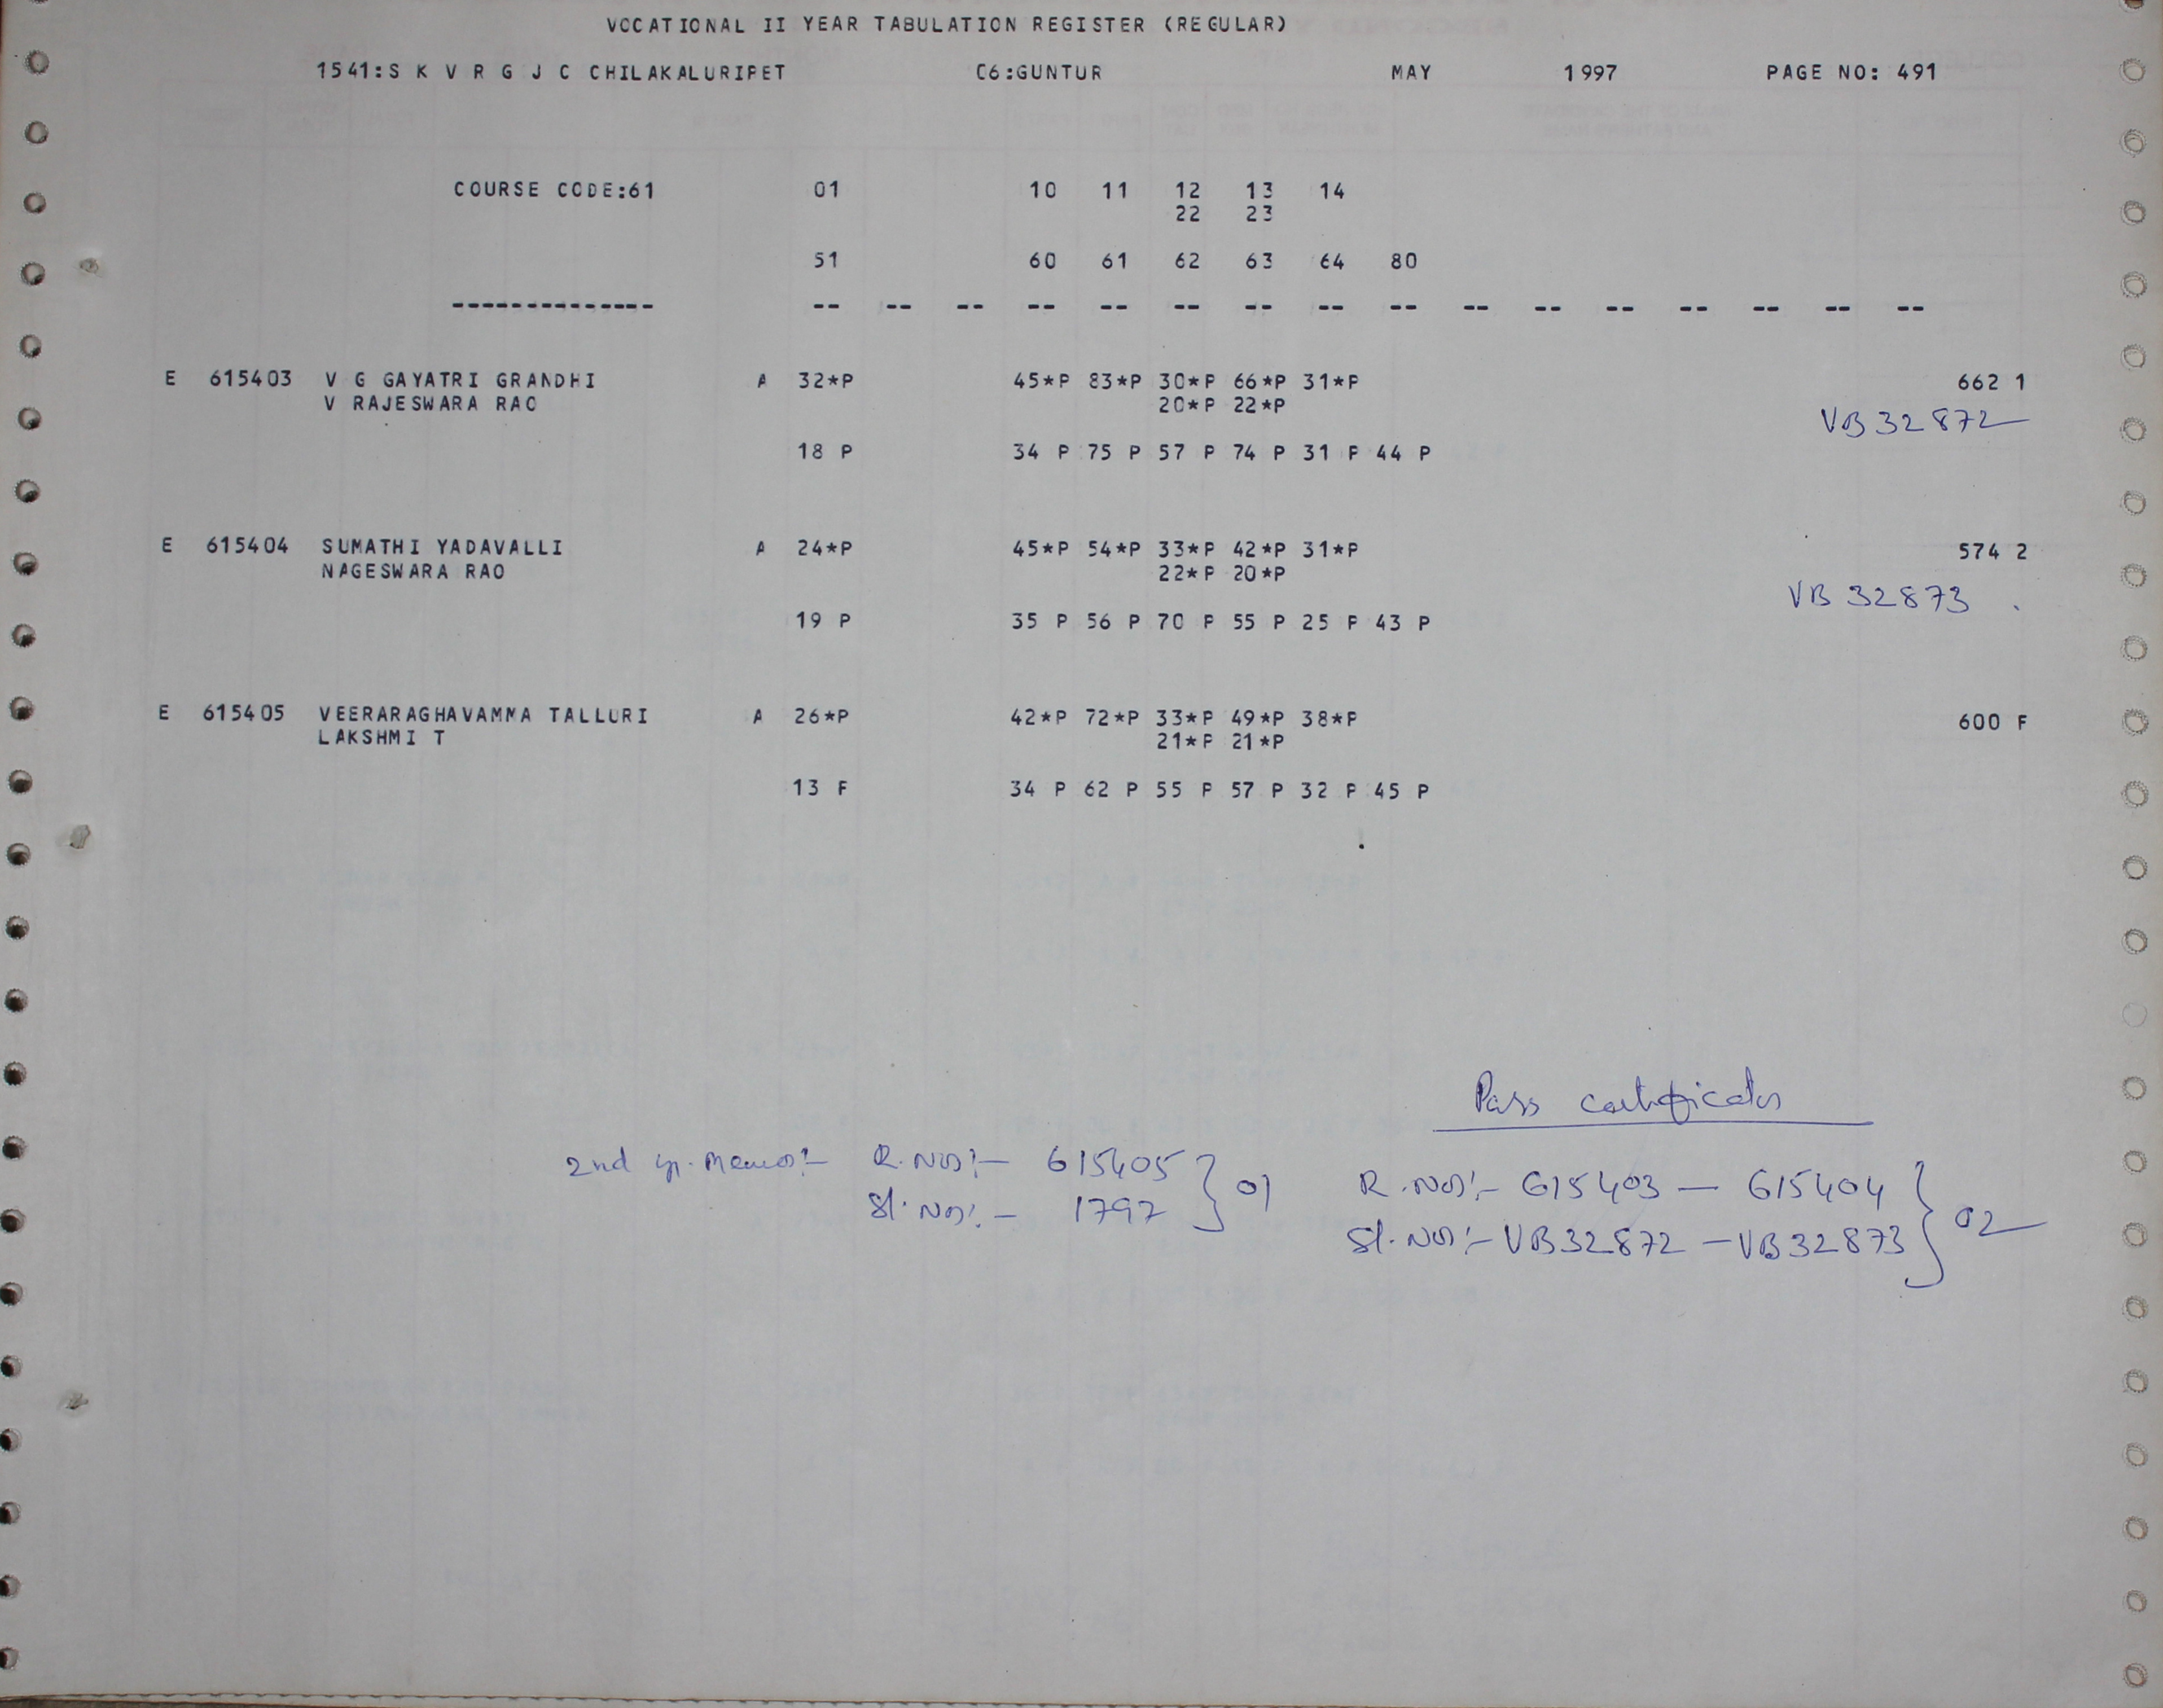 VOCATIONAL II YEAR TABULATION REGISTER (REGULAR)
1541:S K V R G J C CHILAKALURIPET C6:GUNTUR MAY 1997 PAGE NO: 491
COURSE CODE:61 01 10 11 12 13 14
22 23
51 60 61 62 63 64 80
-------------- -- -- -- -- -- -- -- -- -- -- -- -- -- -- -- --
E 615403 V G GAYATRI GRANDHI A 32*P 45*P 83*P 30*P 66*P 31*P 662 1
V RAJESWARA RAO 20*P 22*P
VB 32872
18 P 34 P 75 P 57 P 74 P 31 P 44 P
E 615404 SUMATHI YADAVALLI A 24*P 45*P 54*P 33*P 42*P 31*P 574 2
NAGESWARA RAO 22*P 20*P
VB 32873
19 P 35 P 56 P 70 P 55 P 25 P 43 P
E 615405 VEERARAGHAVAMMA TALLURI A 26*P 42*P 72*P 33*P 49*P 38*P 600 F
LAKSHMI T 21*P 21*P
13 F 34 P 62 P 55 P 57 P 32 P 45 P
Pass certificates
2nd yr. Memos:- R.Nos:- 615405 } 01
Sl.Nos:- 1797
R.Nos:- 615403 - 615404 } 02
Sl.Nos:- VB32872 - VB32873